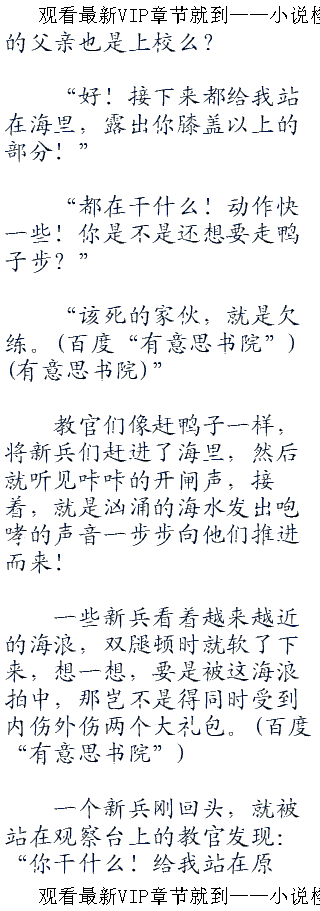 观看最新VIP章节就到——小说
的父亲也是上校么？
“好！接下来都给我站
在海里，露出你膝盖以上的
部分！”
“都在干什么！动作快
一些！你是不是还想要走鸭
子步？”
“该死的家伙，就是欠
练。(百度“有意思书院”)
(有意思书院)”
教官们像赶鸭子一样，
将新兵们赶进了海里，然后
就听见咔咔的开闸声，接
着，就是汹涌的海水发出咆
哮的声音一步步向他们推进
而来！
一些新兵看着越来越近
的海浪，双腿顿时就软了下
来，想一想，要是被这海浪
拍中，那岂不是得同时受到
内伤外伤两个大礼包。(百度
“有意思书院”)
一个新兵刚回头，就被
站在观察台上的教官发现：
“你干什么！给我站在原
观看最新VIP章节就到——小说